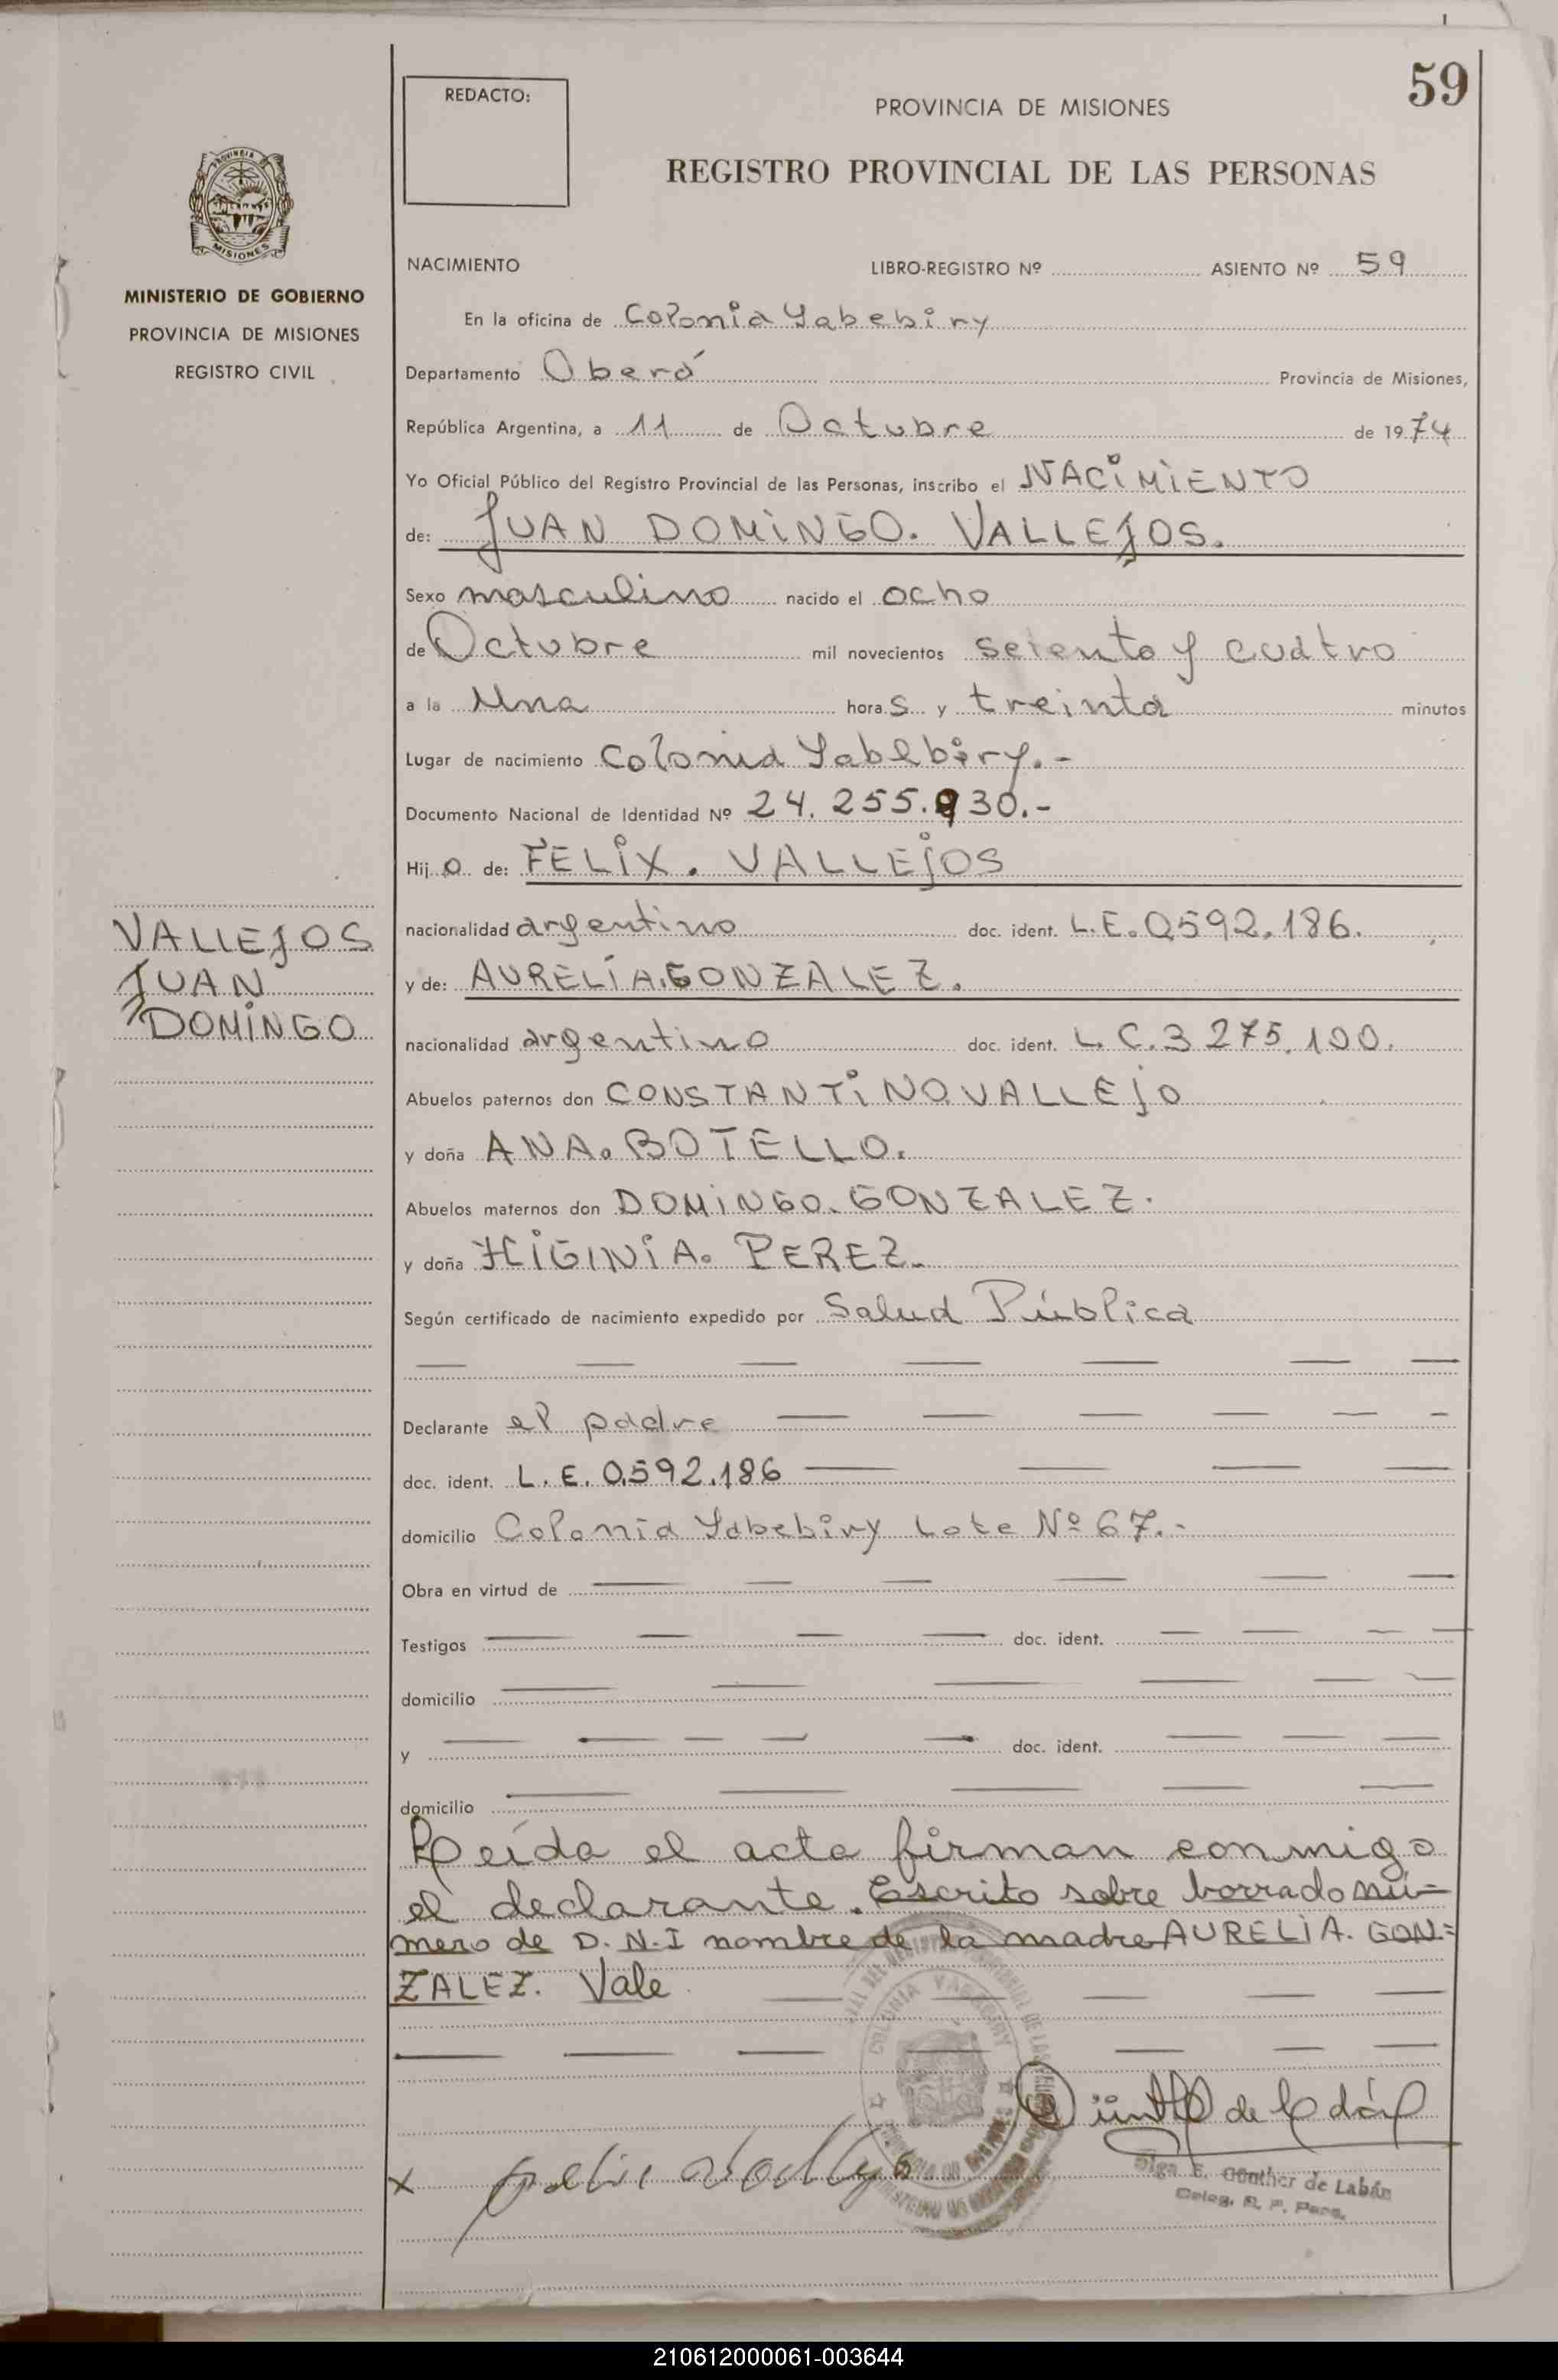 59
REDACTO:
PROVINCIA DE MISIONES
REGISTRO PROVINCIAL DE LAS PERSONAS
PROVINCIA
MISIONES
MINISTERIO DE GOBIERNO
PROVINCIA DE MISIONES
REGISTRO CIVIL
NACIMIENTO LIBRO-REGISTRO Nº ASIENTO Nº 59
En la oficina de Colonia Yabebiry
Departamento Oberá Provincia de Misiones,
República Argentina, a 11 de Octubre de 1974
Yo Oficial Público del Registro Provincial de las Personas, inscribo el NACIMIENTO
de: JUAN DOMINGO. VALLEJOS.
Sexo masculino nacido el ocho
de Octubre mil novecientos setenta y cuatro
a la Una horas y treinta minutos
Lugar de nacimiento Colonia Yabebiry.-
Documento Nacional de Identidad Nº 24.255.930.-
Hijo de: FELIX. VALLEJOS
nacionalidad argentino doc. ident. L.E. 0592.186.
y de: AURELIA. GONZALEZ.
nacionalidad argentino doc. ident. L.C. 3 275.100.
Abuelos paternos don CONSTANTINO. VALLEJO
y doña ANA. BOTELLO.
Abuelos maternos don DOMINGO. GONZALEZ.
y doña HIGINIA. PEREZ.
Según certificado de nacimiento expedido por Salud Pública
Declarante el padre
doc. ident. L. E. 0.592.186
domicilio Colonia Yabebiry Lote Nº 67.-
Obra en virtud de
Testigos doc. ident.
domicilio
y doc. ident.
domicilio
Leída el acta firman conmigo
el declarante. Escrito sobre borrado nú=
mero de D.N.I nombre de la madre AURELIA. GON=
ZALEZ. Vale
VALLEJOS
JUAN
DOMINGO
COLONIA YABEBIRY
Günther de Labán
Olga E. Günther de Labán
Deleg. R. P. Pers.
X
210612000061-003644